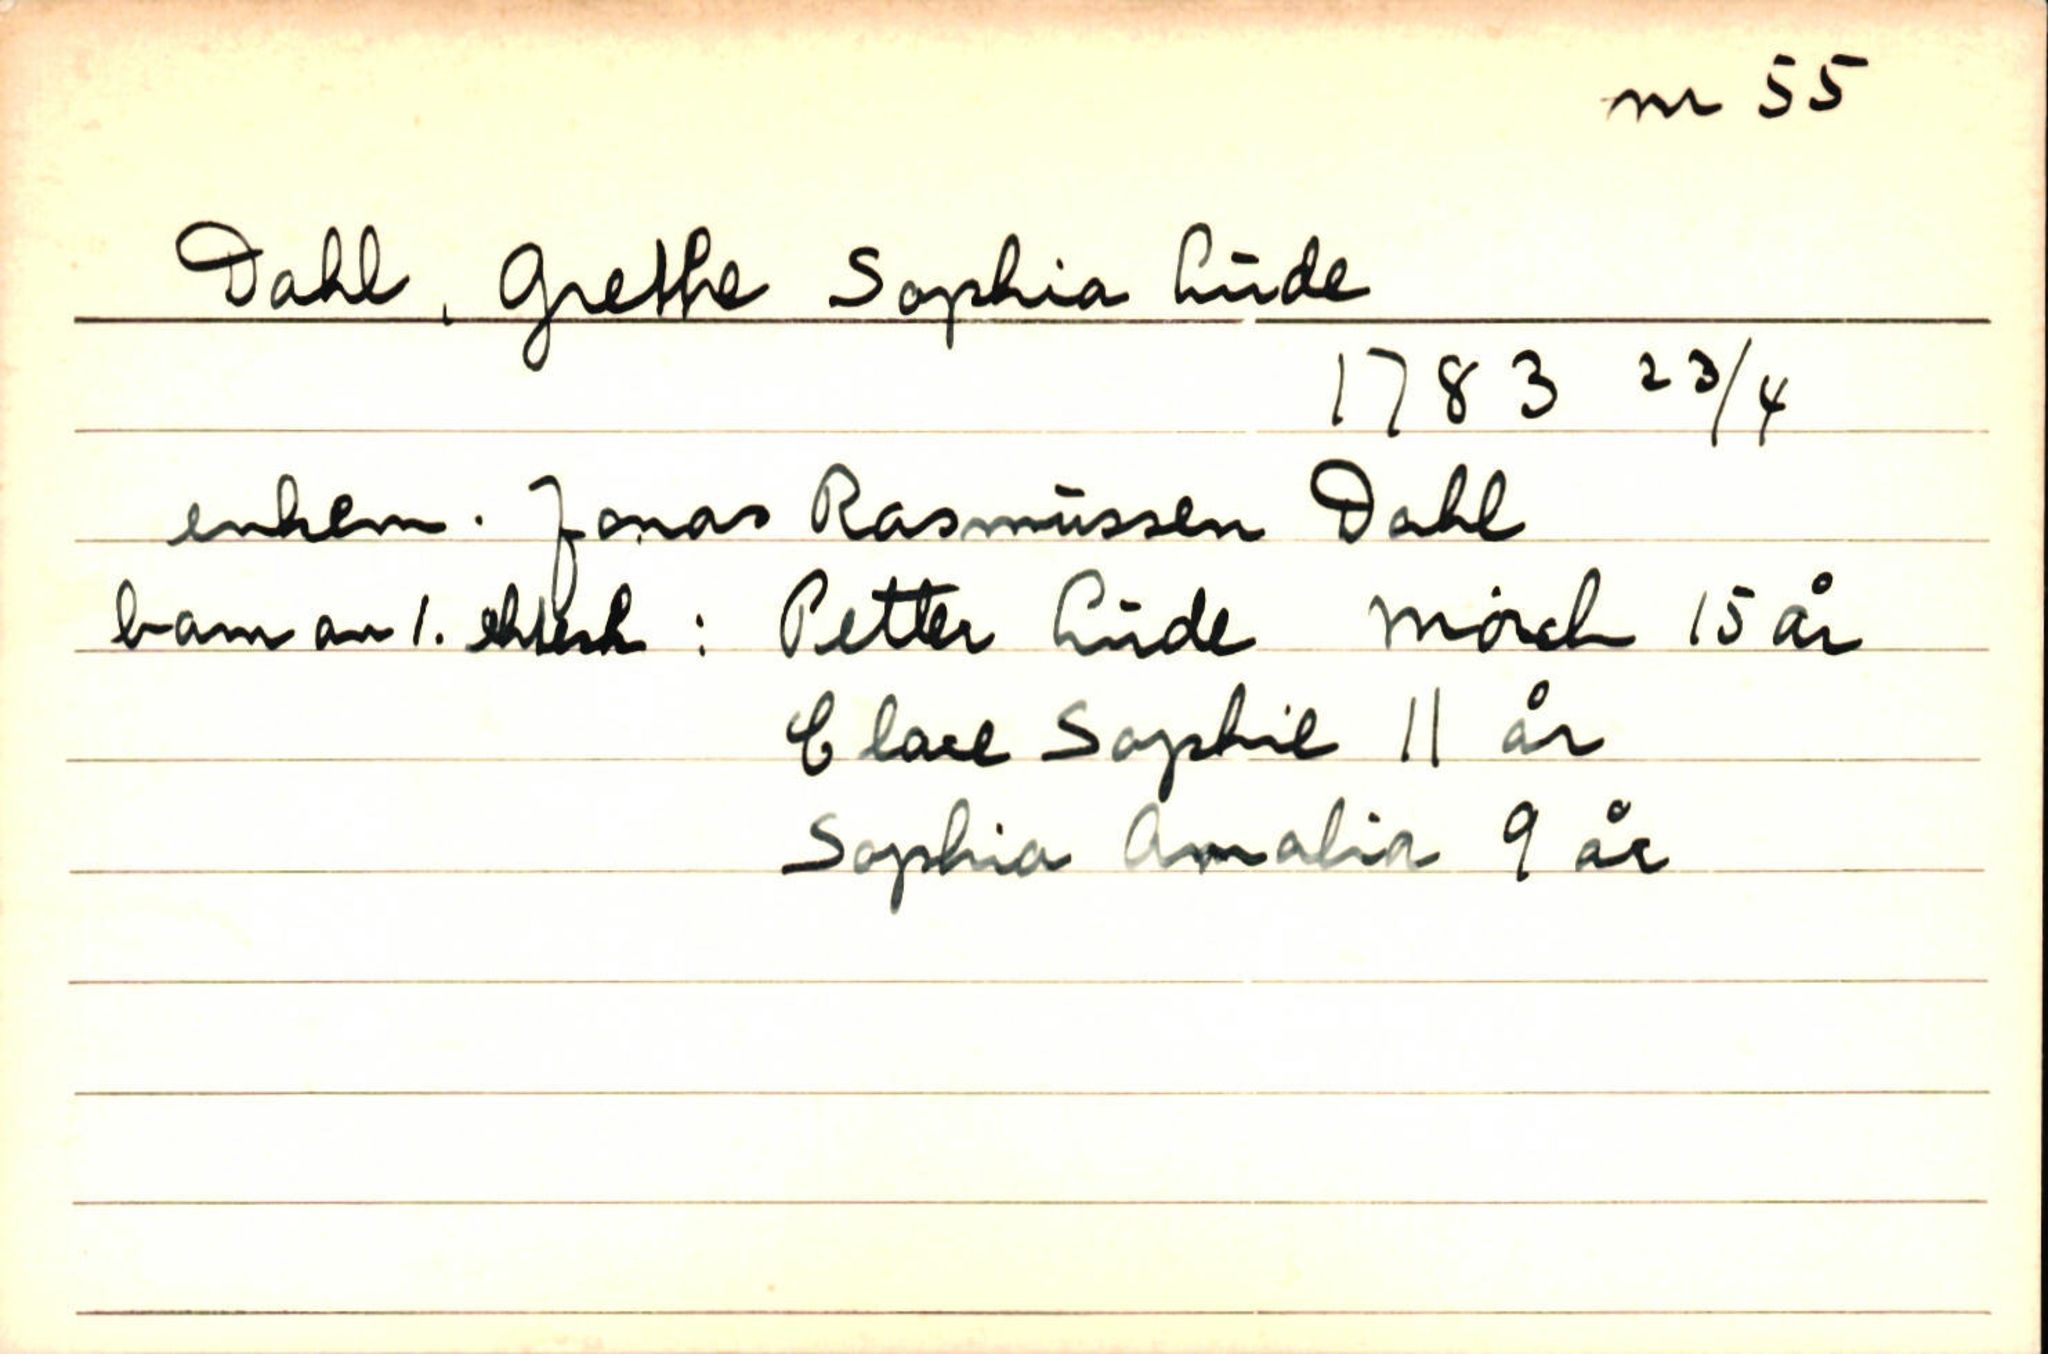 nr 55
Dahl, Grethe Sophia Lüde
1783 23/4
enkem. Jonas Rasmüssen Dahl
barn av 1. ektesk : Petter Lüde Mörch 15 år
Clare Sophie 11 år
Sophia Amalia 9 år